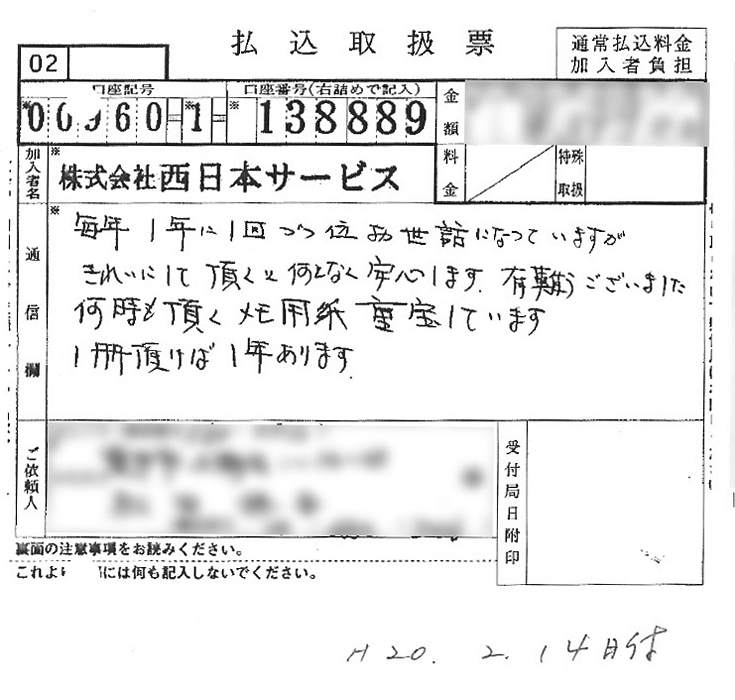 払込取扱票
通常払込料金
加入者負担
02
口座記号
口座番号(右詰めで記入)
00960=1=
138889
金額
料金
特殊取扱
加入者名
株式会社西日本サービス
通信欄
毎年1年に1回づつ位お世話になっていますが
きれいにして頂くと何となく安心します。有難うございました
何時も頂くメモ用紙重宝しています
1冊頂けば1年あります。
ご依頼人
受付局日附印
裏面の注意事項をお読みください。
には何も記入しないでください。
H20. 2. 14日付